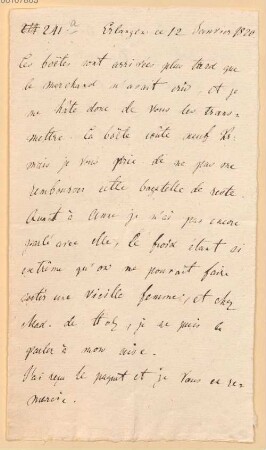 Erlangen ce 12 Janvier 1820
Ces boîtes sont arrivées plus tard que
le marchand n'avait crû, et je
me hâte donc de vous les trans-
mettre. La boîte coûte neuf Kr.
mais je vous prie de ne pas me
rembourser cette bagatelle de reste.
Quant à je n'ai pas encore
parlé avec elle, le froid étant si
extrême qu'on ne pouvait faire
sortir une vieille femme, et chez
Mad. de je ne puis la
parler à mon aise.
J'ai reçu le paquet et je vous en re-
mercie.